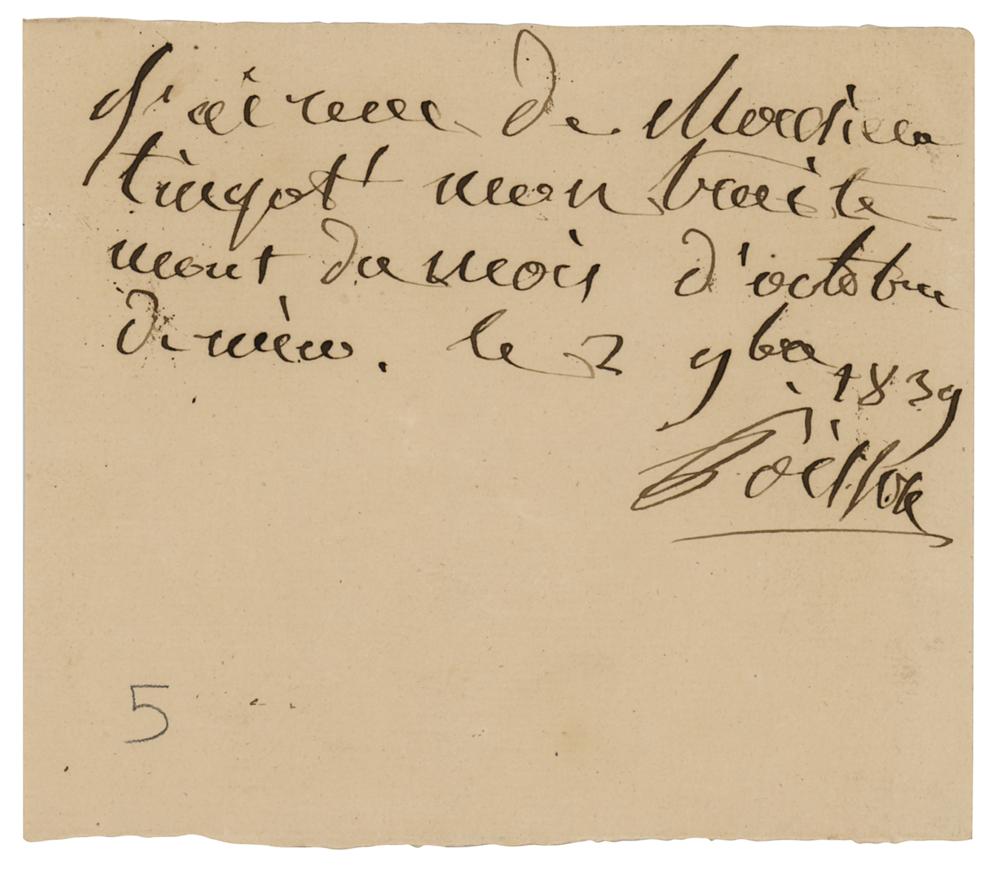 J'ai reçu de Monsieur
tingot mon traite-
ment du mois d'octobre
dernier. le 2 9bre 1839
5